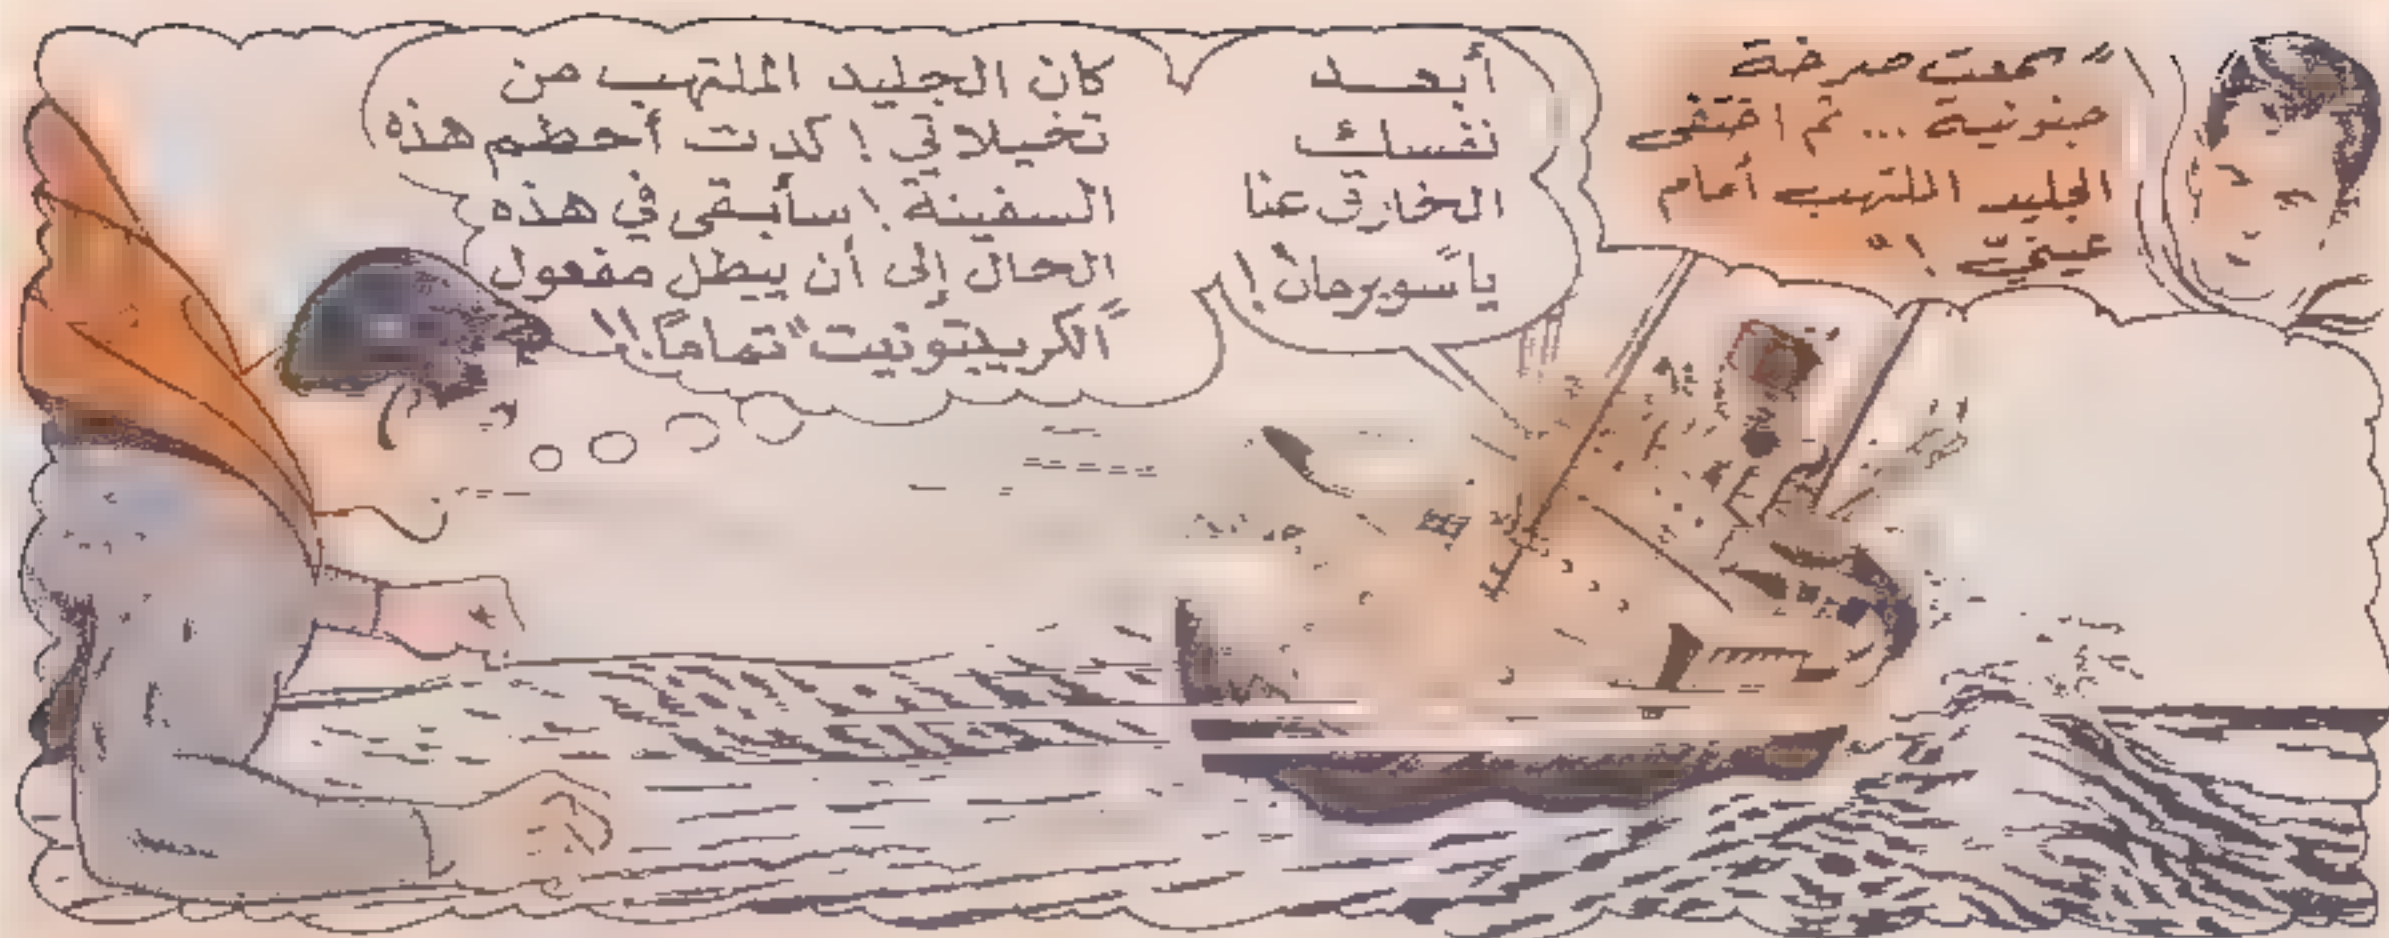 "سمعت صرخة
جنونية ... ثم اختفى
الجليد الملتهب أمام
عينيّ !"
أبعد
نفسك
الخارق عنا
يا سوبرمان !
كان الجليد الملتهب من
تخيلاتي ! كدت أحطم هذه
السفينة ! سأبقى في هذه
الحال إلى أن يبطل مفعول
"الكريبتونيت" تماماً !!